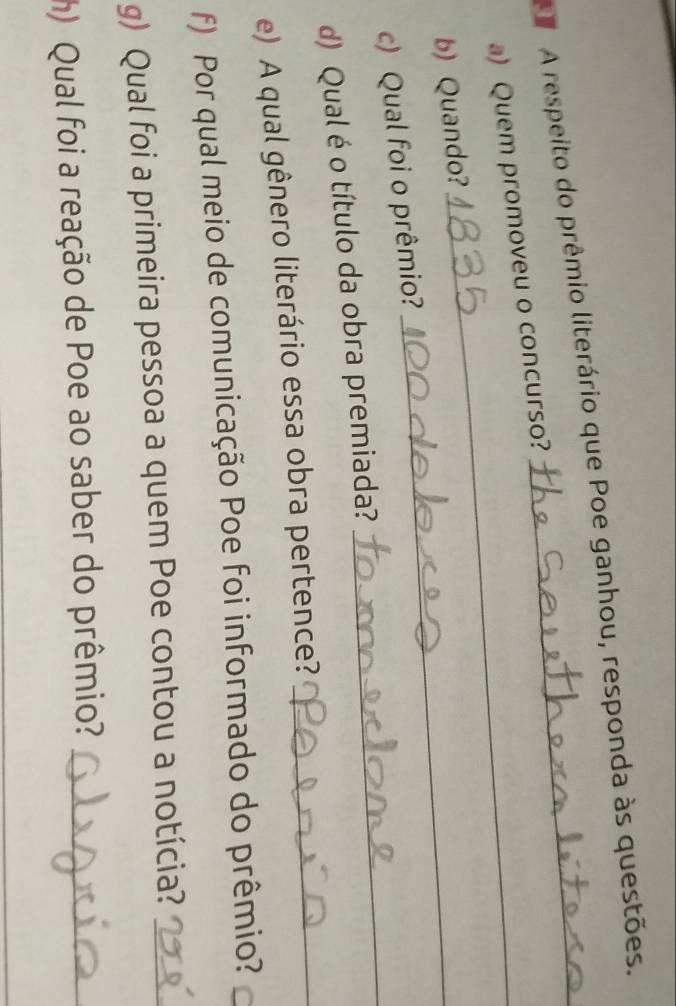 A respeito do prêmio literário que Poe ganhou, responda às questões.
a) Quem promoveu o concurso? the Southern litera
b) Quando? 1835
c) Qual foi o prêmio? 100 dolares
d) Qual é o título da obra premiada? to
e) A qual gênero literário essa obra pertence? Poemia
f) Por qual meio de comunicação Poe foi informado do prêmio?
g) Qual foi a primeira pessoa a quem Poe contou a notícia?
h) Qual foi a reação de Poe ao saber do prêmio? alegria